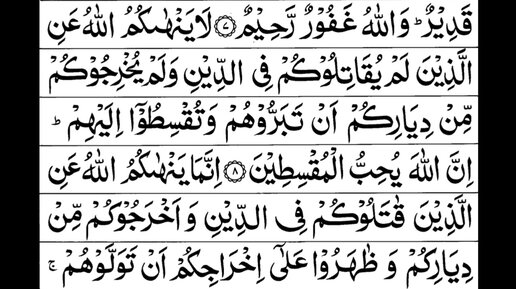 قَدِيْرٌ ؕ وَاللّٰهُ غَفُوْرٌ رَّحِيْمٌ ﴿۷﴾ لَا يَنْهٰىكُمُ اللّٰهُ عَنِ
الَّذِيْنَ لَمْ يُقَاتِلُوْكُمْ فِى الدِّيْنِ وَلَمْ يُخْرِجُوْكُمْ
مِّنْ دِيَارِكُمْ اَنْ تَبَرُّوْهُمْ وَتُقْسِطُوْۤا اِلَيْهِمْ ؕ
اِنَّ اللّٰهَ يُحِبُّ الْمُقْسِطِيْنَ ﴿۸﴾ اِنَّمَا يَنْهٰىكُمُ اللّٰهُ عَنِ
الَّذِيْنَ قٰتَلُوْكُمْ فِى الدِّيْنِ وَ اَخْرَجُوْكُمْ مِّنْ
دِيَارِكُمْ وَ ظٰهَرُوْا عَلٰٓى اِخْرَاجِكُمْ اَنْ تَوَلَّوْهُمْ ۚ